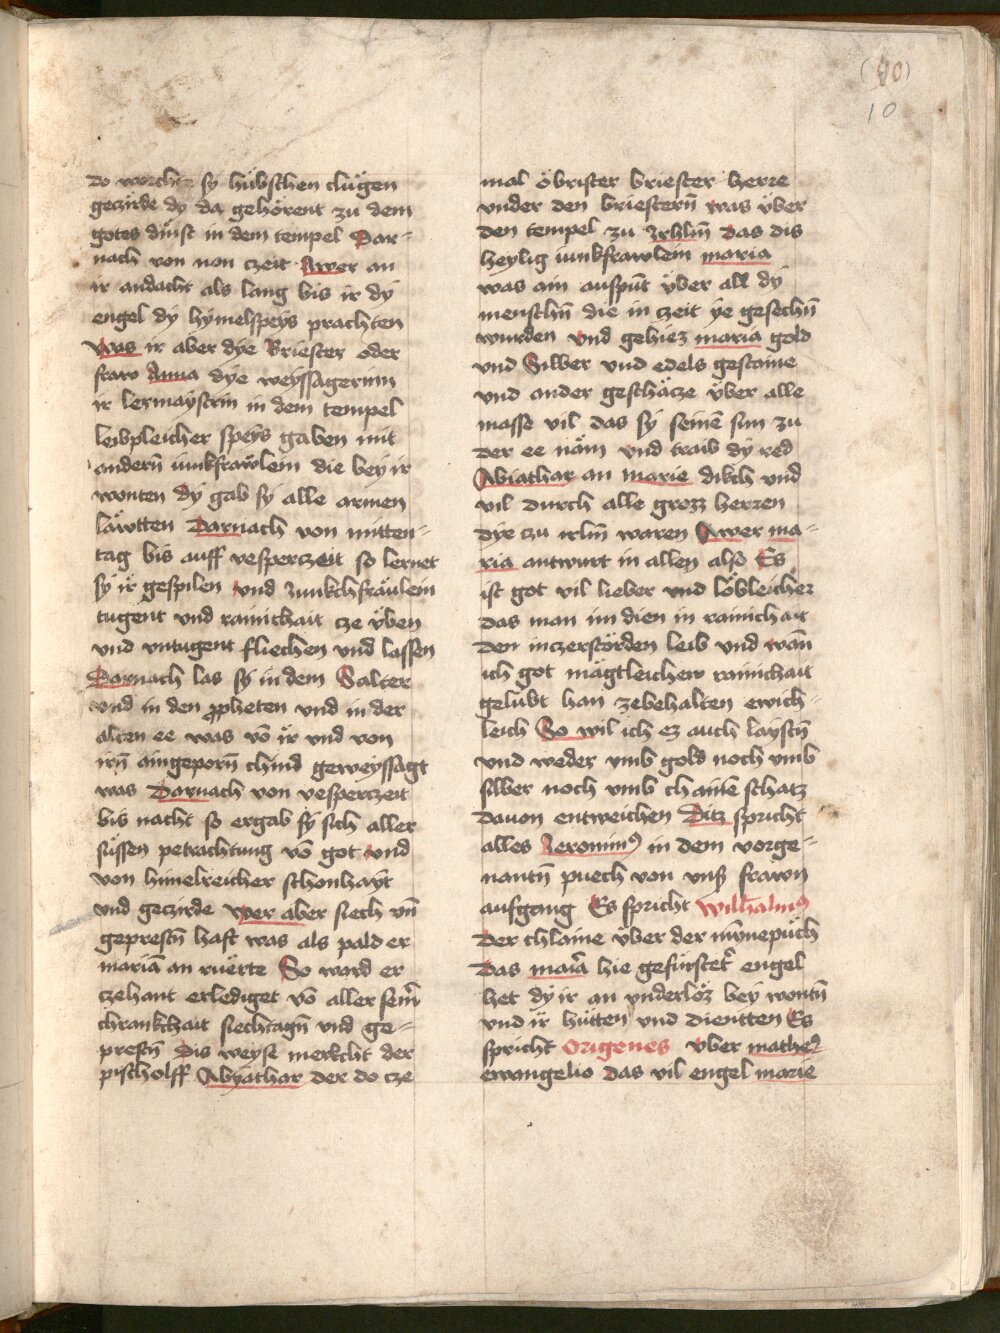 (10)
10
do worcht sy hübschen clůgen
geczirde dy da gehörent zu dem
gotes dinst in dem tempel Dar-
nach von non czeit Awer an
ir andacht als lang bis ir dy
engel dy hymelspeys prachten
Was ir aber dye Briester oder
fraw Anna dye weyssagerinn
ir lermaystrin in dem tempel
leibpleicher speys gaben mit
andern̄ iunkfrawlein die bey ir
wonten dy gab sy alle armen
läwtten Darnach von mitten-
tag bis auff vesperczeit so lernet
sy ir gespilen vnd Junkchfräulein
tugent vnd rainichait cze vben
vnd vntugent fliechen vnd lassen
Darnach las sy in dem Salter
vnd in den ꝓpheten vnd in der
alten ee was vō ir vnd von
irn̄ aingeporn̄ chind geweyssagt
was Darnach von vesperczeit
bis nacht so ergab sy sich aller
süssen petrachtung vō got vnd
von himelreicher schonhayt
vnd geczirde Wer aber siech vn̄
geprestn̄ haft was als pald er
mariā an ruerte So ward er
czehant erlediget vō aller seinr̄
chrankchait siechtagn̄ vnd ge-
prestn̄ Dis weyse merkcht der
pischolff Abyathar der do cze
mal öbrister briester herre
vnder den briestern̄ was vber
den tempel zu Jrhlm̄ Das dis
heylig iunkfrawlein maria
was ain auspūt vber all dy
menschn̄ die in czeit ye gesechn̄
wurden vnd gehiez maria gold
vnd Silber vnd edels gestaine
vnd ander geschäcze vber alle
masse vil das sy seinē sun zu
der ee näm vnd traib dy red
Abiathar an marie dikch vnd
vil durch alle grozz herren
dye czu irlm̄ waren Awer ma-
ria antwurt in allen also Es
ist got vil lieber vnd löbleicher
das man im dien in rainichait
Den inczerstörden leib vnd wan̄
ich got mägtleicherr rainichait
gelubt han zebehalten ewich-
leich So wil ich ez auch laystn̄
vnd weder vmb gold noch vmb
silber noch vmb chainē schatz
dauon entweichen Ditz spricht
alles Jeronimꝰ in dem vorge-
nantn̄ puech von vnß frawn
aufgang Es spricht Wilhalmꝰ
Der chlaine vber der mynnepüch
Das maīa hie gefürstet engel
het dy ir an vnderloz bey wontn̄
vnd ir hütten vnd dientten Es
spricht Origenes vber mathei
ewangelio das vil engel marie